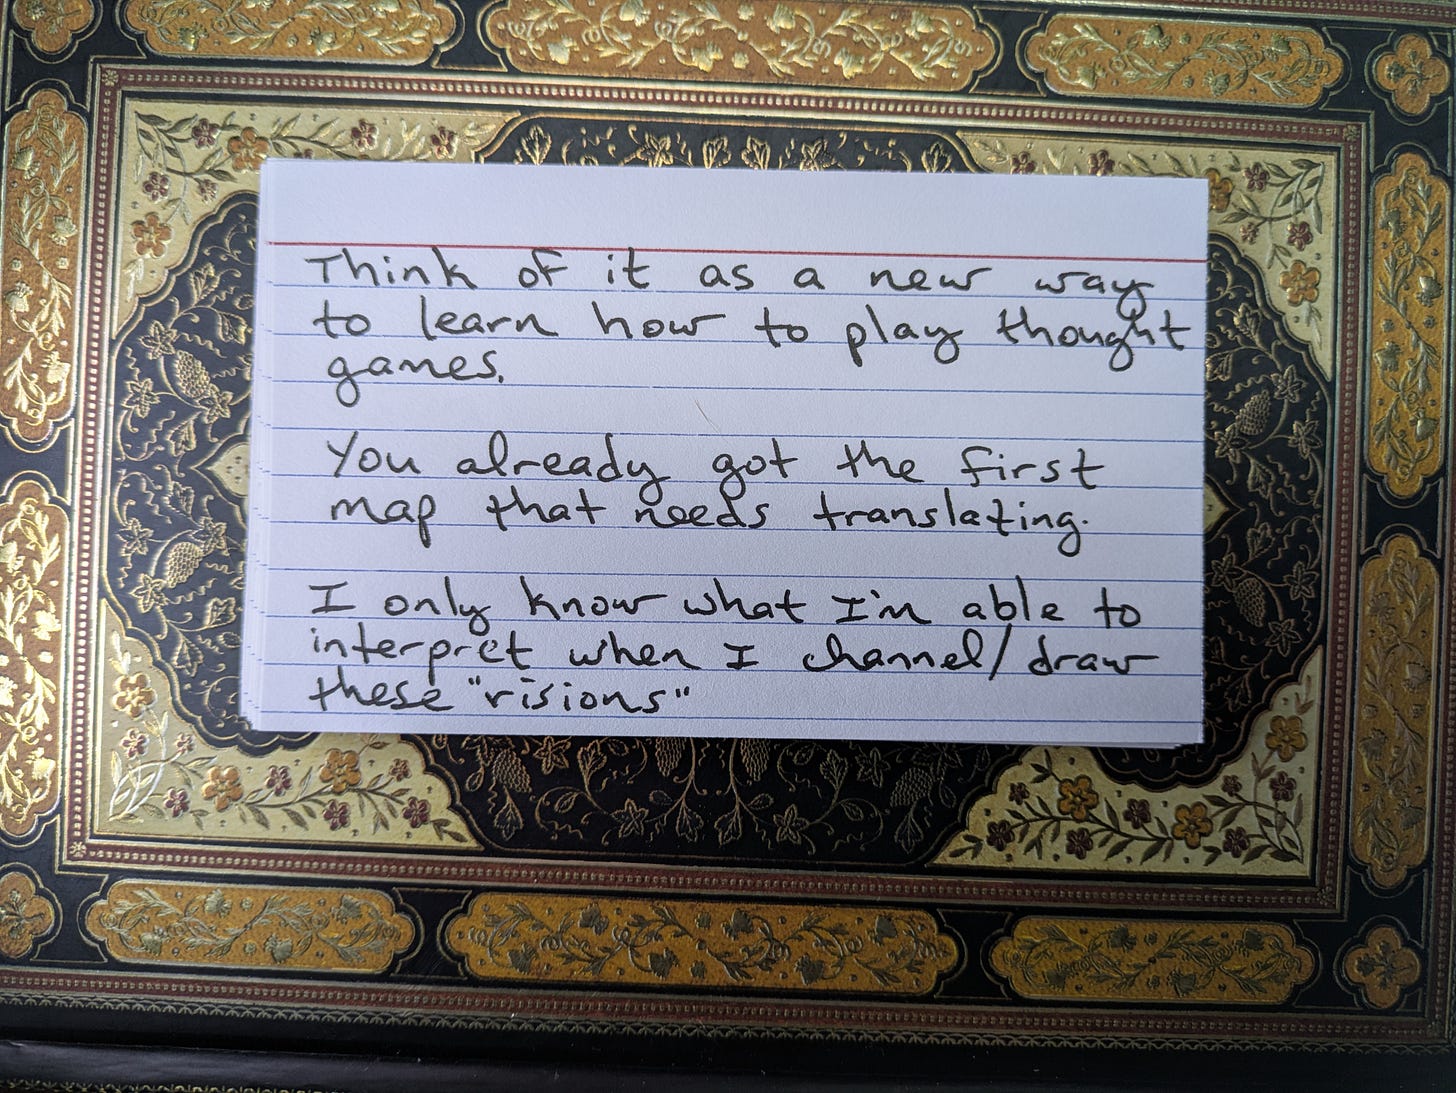 Think of it as a new way
to learn how to play thought
games.
You already got the first
map that needs translating.
I only know what I'm able to
interpret when I channel/draw
these "risions"